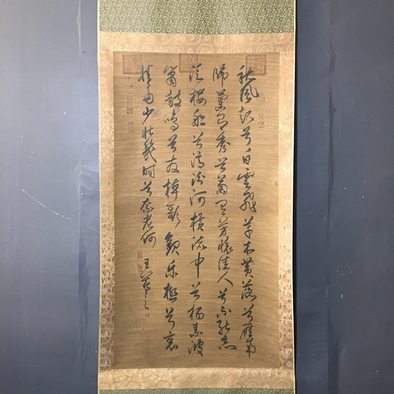 秋風起兮白雲飛草木黃落兮雁南
歸蘭有秀兮菊有芳懷佳人兮不能忘
泛樓船兮濟汾河橫流中兮揚素波
簫鼓鳴兮發棹歌歡樂極兮哀
情多少壯幾時兮奈老何 王羲之